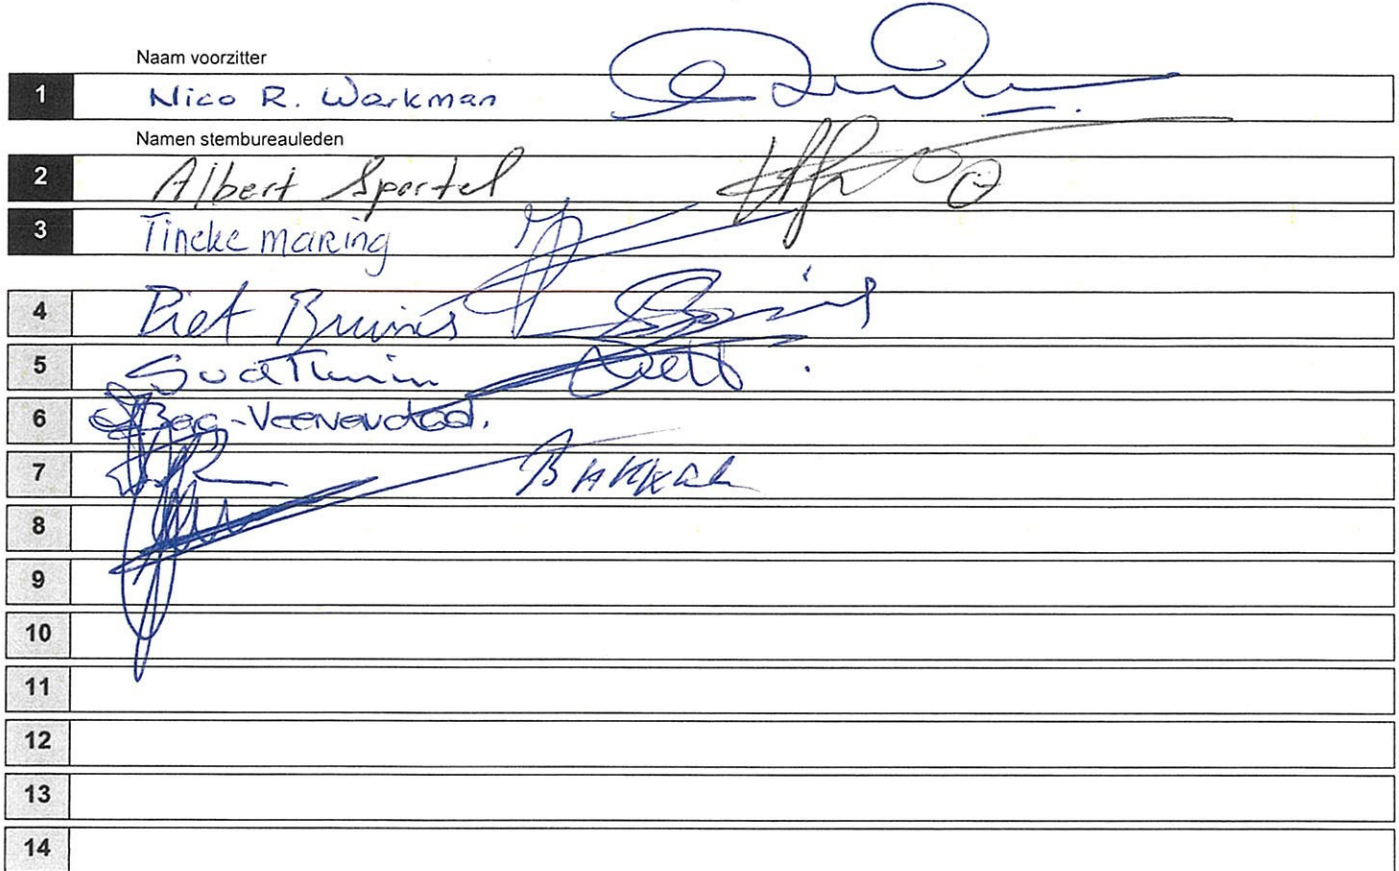 Naam voorzitter
1 Nico R. Workman
Namen stembureauleden
2 Albert Sportel
3 Tineke Maring
4 Piet Bruins
5
6 Veenendaal.
7 Bakker
8
9
10
11
12
13
14